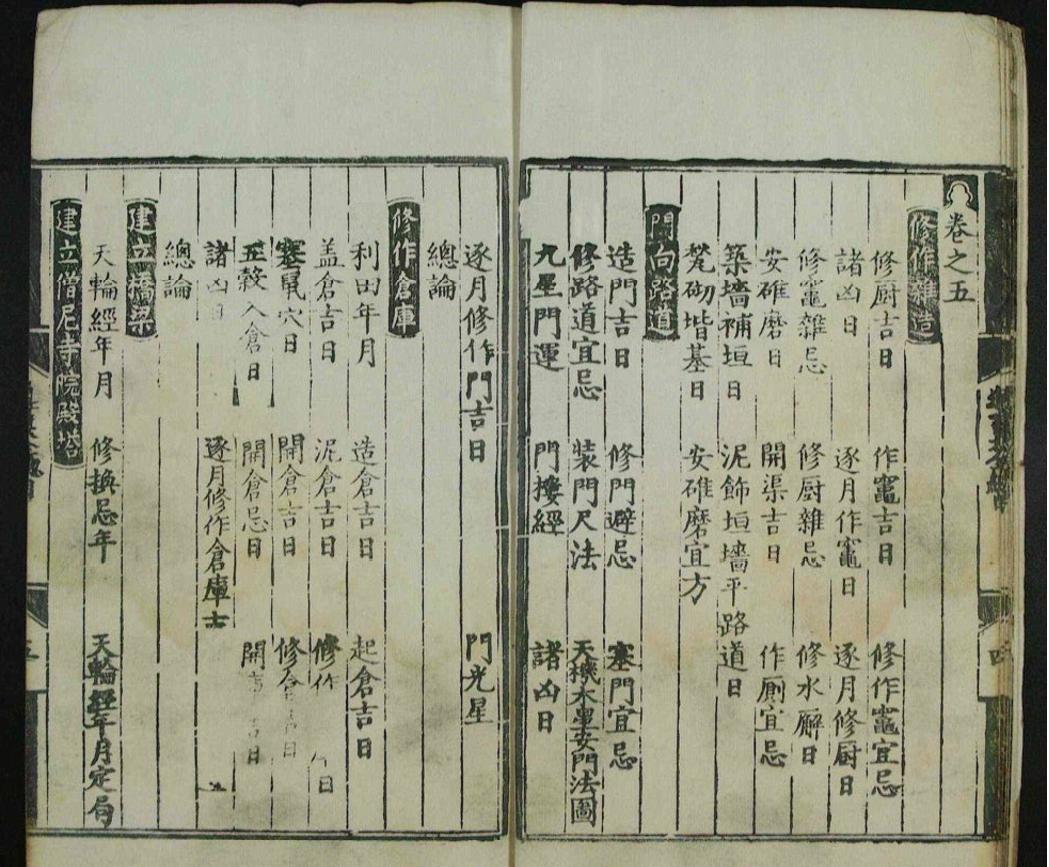 卷之五
修作雜造
修厨吉日 作竈吉日 修作竈宜忌
諸凶日 逐月作竈日 逐月修厨日
修竈雜忌 修厨雜忌 修水廨日
安碓磨日 開渠吉日 作厠宜忌
築墻補垣日 泥飾垣墻平路道日
甃砌堦基日 安碓磨宜方
門向路道
造門吉日 修門避忌 塞門宜忌
修路道宜忌 裝門尺法 天機木星安門法圖
九星門運 門捿經 諸凶日
逐月修作門吉日 門光星
總論
修作倉庫
利田年月 造倉吉日 起倉吉日
盖倉吉日 泥倉吉日 修作 日
塞鼠穴日 開倉吉日 修倉 日
五穀入倉日 開倉忌日 開 吉日
諸凶日 逐月修作倉庫吉
總論
建立橋梁
天輪經年月 修換忌年 天輪經年月定局
建立僧尼寺院殿塔